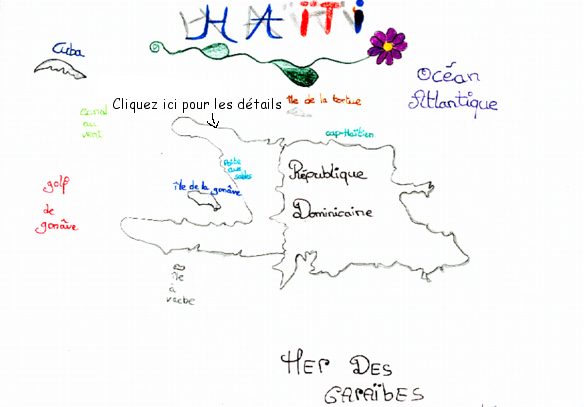 HAÏTI
Cuba
Océan
Atlantique
Canal
au
vent
Cliquez ici pour les détails
île de la tortue
cap-Haïtien
golf
de
gonâve
île de la gonâve
République
Dominicaine
île
à
vache
Mer Des
Caraïbes